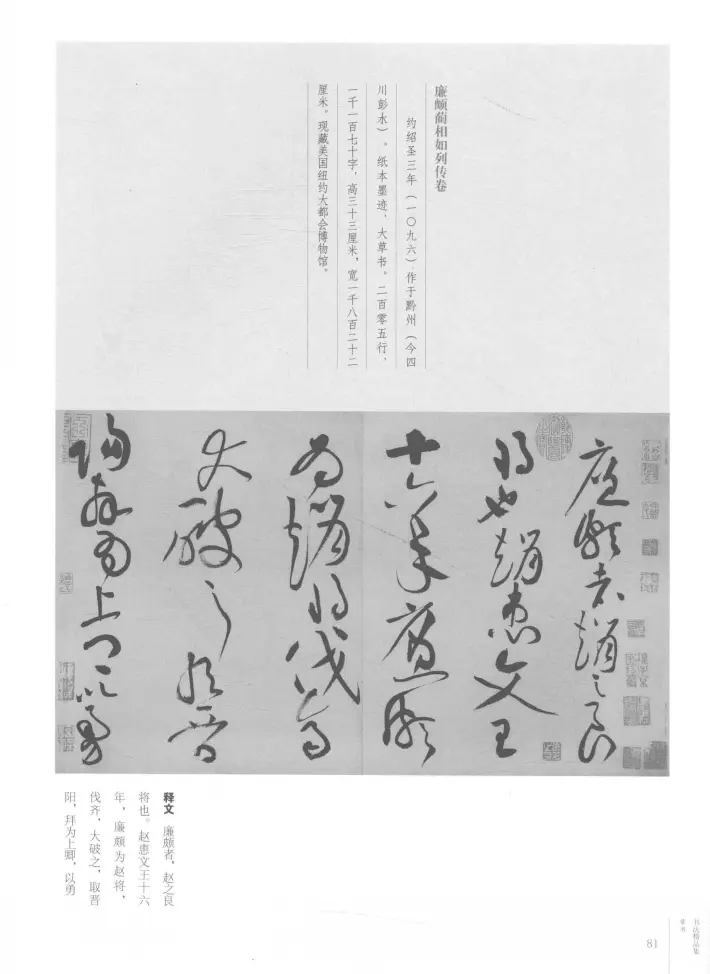 廉颇蔺相如列传卷
约绍圣三年（一〇九六）作于黔州（今四
川彭水）。纸本墨迹，大草书。二百零五行，
一千一百七十字，高三十三厘米，宽一千八百二十二
厘米。现藏美国纽约大都会博物馆。
廉颇者赵之良
将也赵惠文王
十六年廉颇
为赵将伐齐
大破之取晋
阳拜为上卿以勇
释文 廉颇者，赵之良
将也。赵惠文王十六
年，廉颇为赵将，
伐齐，大破之，取晋
阳，拜为上卿，以勇
书法精品集
章书
81